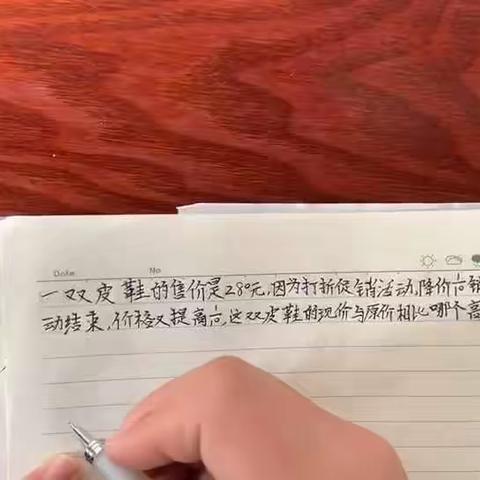 Date
No
一双皮鞋的售价是280元,因为打折促销活动,降价
动结束,价格又提高,这双皮鞋的现价与原价相比哪个高